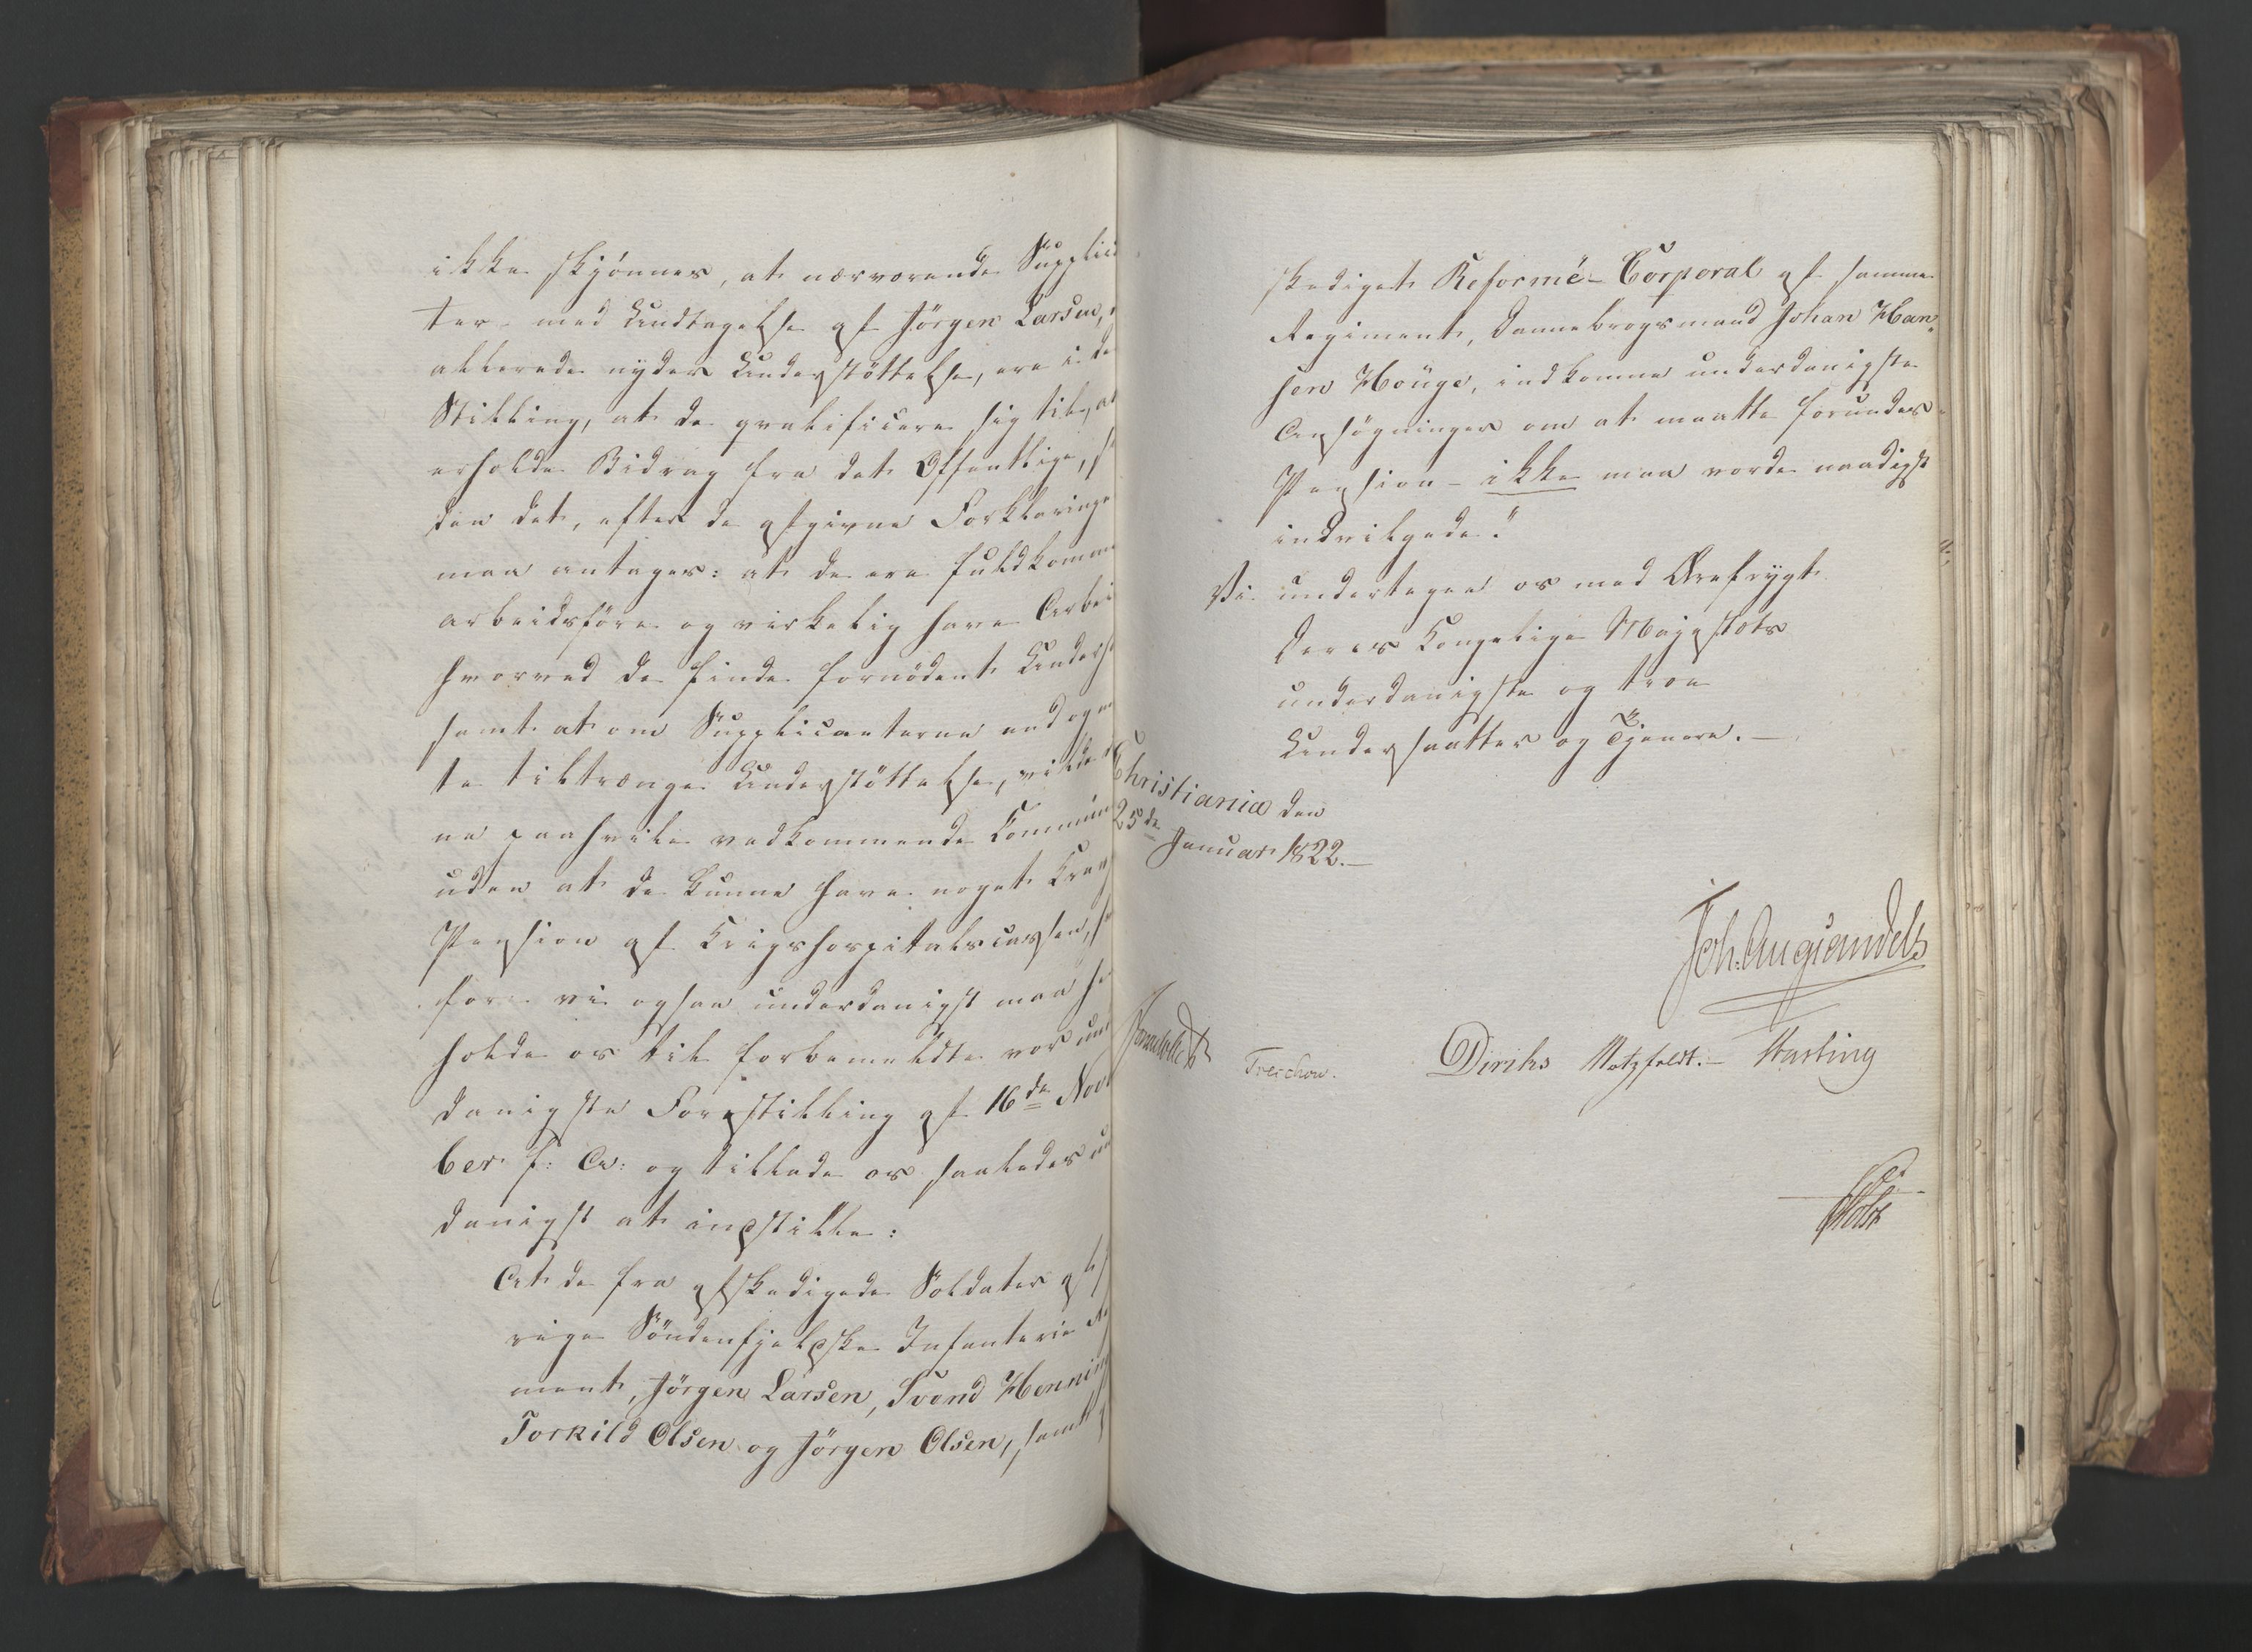 ikke skjönnes, at nærværende Supplic
ter med Undtagelse af Jörgen Larsen,
allerede nyder Understöttelse, ere i de
Stilling, at de qvalificere sig til, at
erholde Bidrag fra det Offentlige,
den det, efter de afgivne Forklaringe
maa antages: at de ere fuldkomme
arbeidsföre og virkelig have Arbei
hvorved de finde fornödent Underh
samt at om Supplicanterne endog
te tiltrænge Understöttelse, vilde
ne paahvile vedkommende Commun
uden at de kunne have noget Krav
Pension af Krigshospitalscassen,
fore vi ogsaa underdanigst maa he
holde os til forbemeldte vor und
danigste Forestilling af 16de Nov
ber f: A: og tillade os saaledes un
danigst at indstille:
At de fra afskedigede Soldater af
rige Söndenfjeldske Infanterie Re
ment, Jörgen Larsen, Svend Henning
Torkild Olsen og Jörgen Olsen, samt
skediget Reformé-Corporal af samme
Regiment, Dannebrogsmand Johan Han
sen Houge, indkomne underdanigste
Ansögninger om at maatte forundes
Pension - ikke maa vorde naadigst
indvilgede."
Vi undertegne os med Ærefrygt
Deres Kongelige Majestæts
underdanigste og troe
Undersaatter og Tjenere. —
Christiania den
25de Januar 1822. —
Joh: Aug Sandels
Sommerhielm
Treschow.
Diriks Motzfeldt. — Fasting
Holst